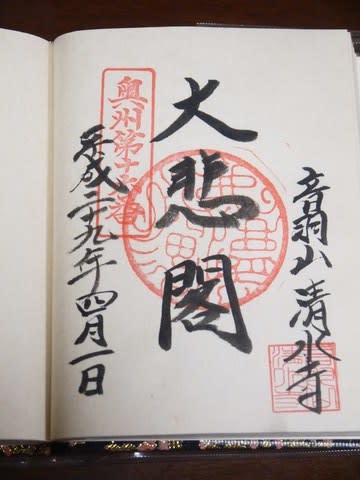 音羽山 清水寺
大悲閣
奥州第十六番
平成二十九年四月一日